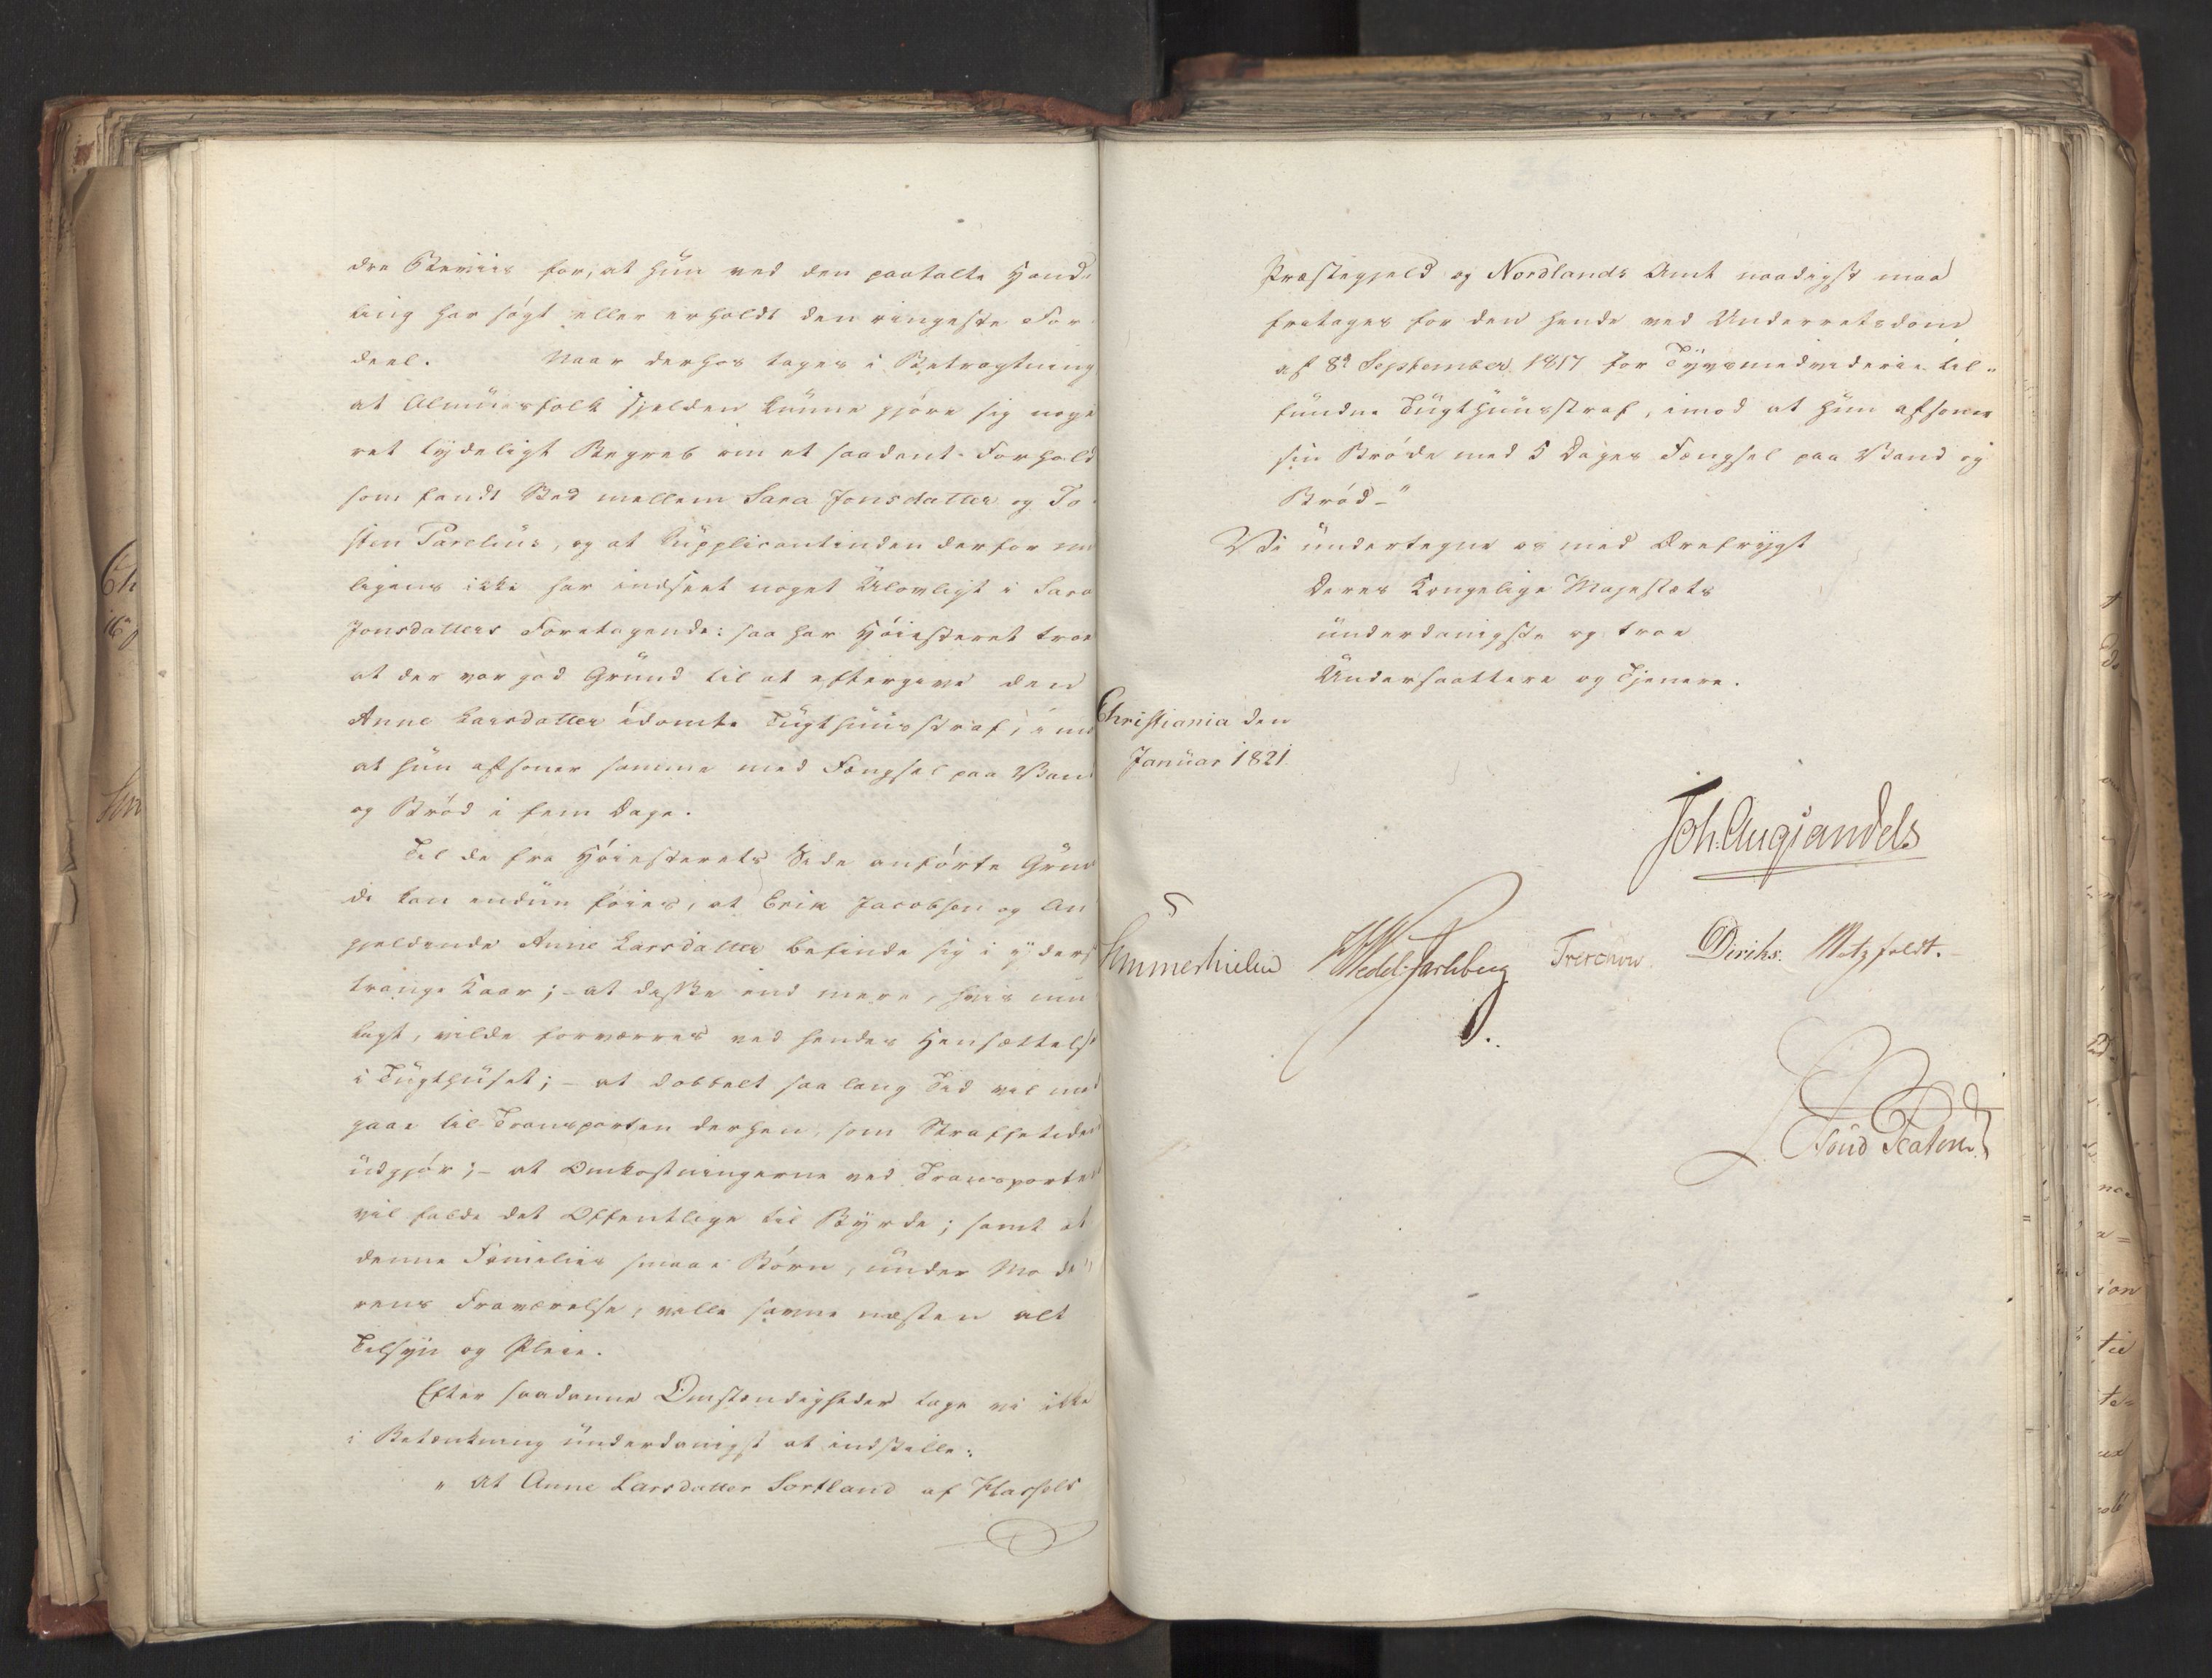 dre Beviis for, at hun ved den paatalte Hand-
ling har søgt eller erholdt den ringeste For-
deel. Naar derhos tages i Betragtning
at Almuesfolk sjelden kunne gjøre sig noget
ret tydeligt Begreb om et saadant Forhold
som fandt Sted mellem Sara Jonsdatter og To-
sten Parelius, og at Supplicantinden derfor
ikke har indseet noget Ulovligt i Sara
Jonsdatters Foretagende: saa har Høiesteret troet
at der var god Grund til at eftergive den
Anne Larsdatter idømte Tugthuusstraf, imod
at hun afsoner samme med Fængsel paa Vand
og Brød i fem Dage.
Til de fra Høiesterets Side anførte Grun-
de kan endnu føies, at Erik Jacobsen og An-
gjeldende Anne Larsdatter befinde sig i yderst
trange Kaar; - at disse end mere, hvis mu-
ligt, vilde forværres ved hendes Hensættelse
i Tugthuset; - at dobbelt saa lang Tid vil med-
gaae til Transporten derhen, som Straffetiden
udgjør; - at Omkostningerne ved Transporten
vil falde det Offentlige til Byrde; samt at
denne Families smaae Børn, under Mode-
rens Fraværelse, ville savne næsten alt
Tilsyn og Pleie.
Efter saadanne Omstændigheder tage vi ikke
i Betænkning underdanigst at indstille:
" at Anne Larsdatter Sortland af Hassels
Præstegjeld og Nordlands Amt naadigst maa
fritages for den hende ved Underretsdom
af 8d September 1817 for Tyvsmedvideri til-
fundne Tugthuusstraf, imod at hun afsoner
sin Brøde med 5 Dages Fængsel paa Vand og
Brød - "
Vi undertegne os med Ærefrygt
Deres Kongelige Majestæts
underdanigste og troe
Undersaattere og Tjenere.
Christiania den
Januar 1821.
Joh. Aug Sandels
Sommerhielm Wedel-Jarlsberg Treschow. Diriks. Motzfeldt.